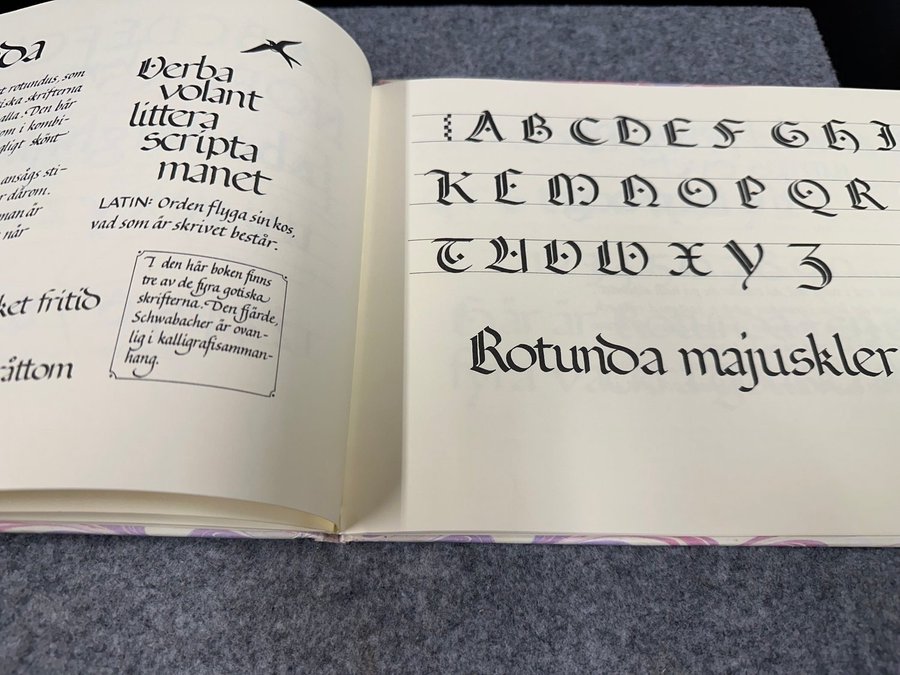 da
t rotundus, som
iska skrifterna
alla. Den bär
om i kombi-
gligt skönt
ansågs sti-
r därom.
man är
når
ket fritid
råttom
Verba
volant
littera
scripta
manet
LATIN: Orden flyga sin kos,
vad som är skrivet består.
I den här boken finns
tre av de fyra gotiska
skrifterna. Den fjärde,
Schwabacher är ovan-
lig i kalligrafisamman-
hang.
A B C D E F G H I
K L M N O P Q R
T U V W X Y Z
Rotunda majuskler